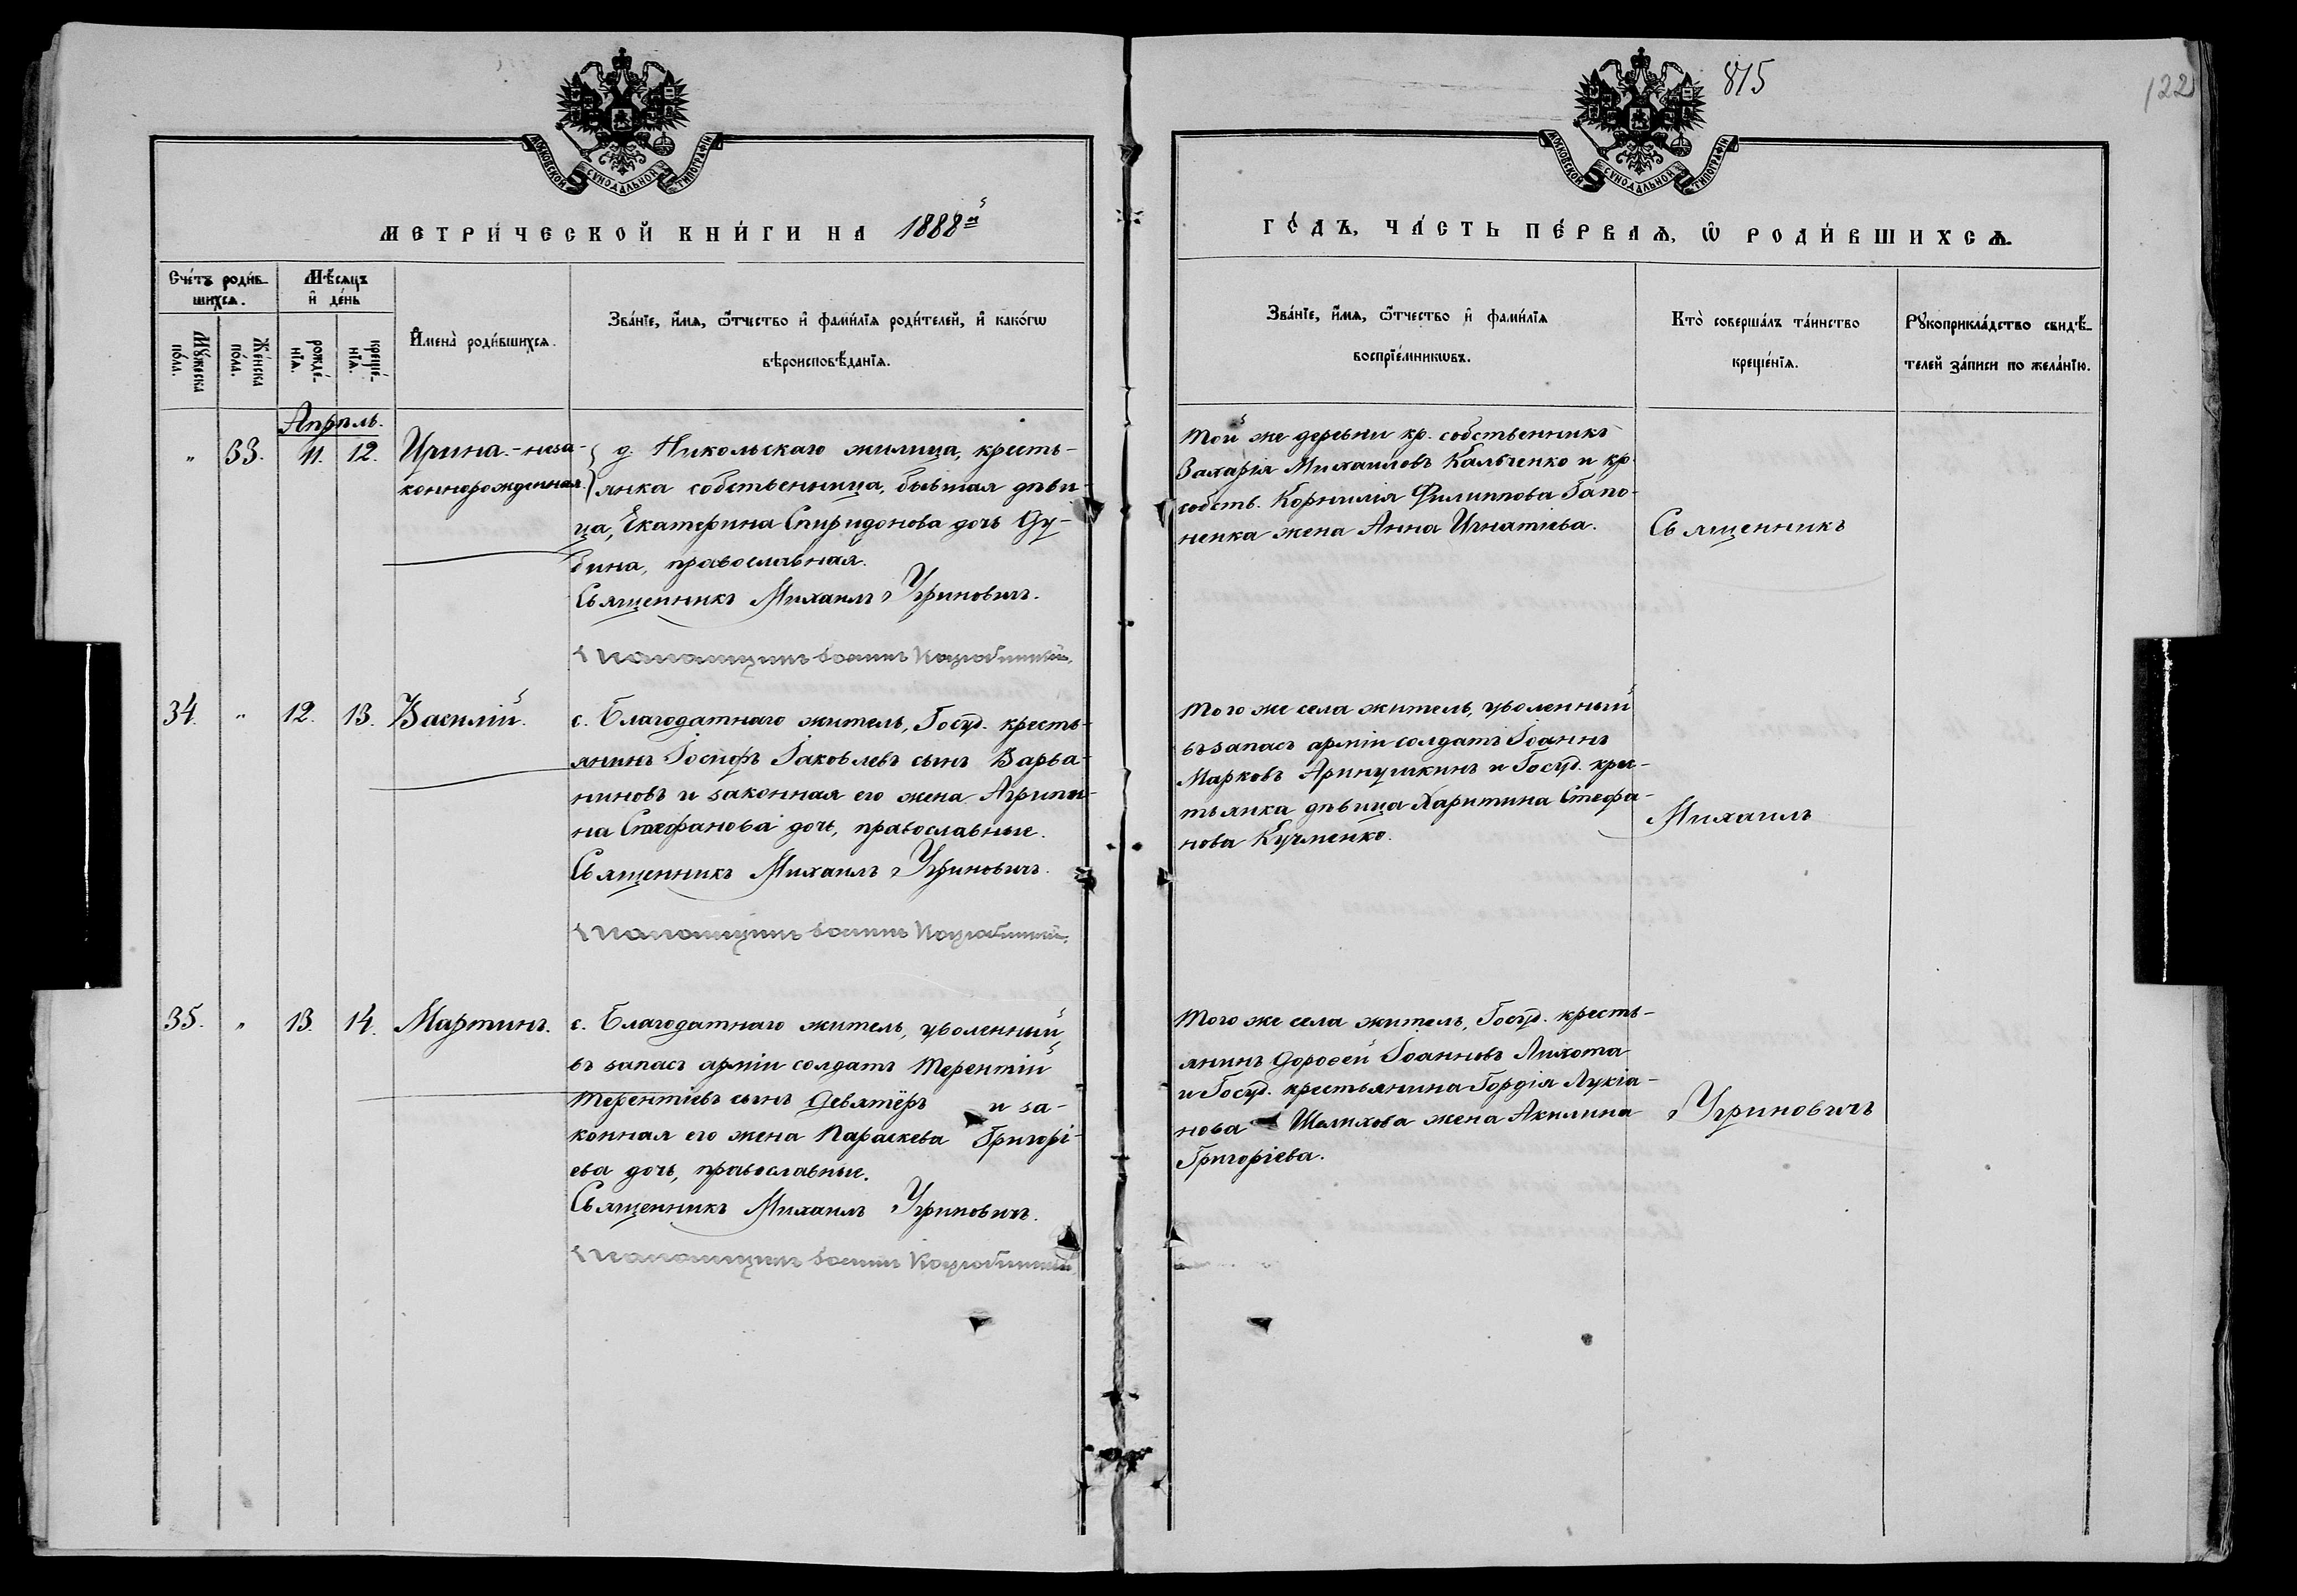 815
122
МОСКОВСКОЙ СѴНОДАЛЬНОЙ ТИПОГРАФІИ
МОСКОВСКОЙ СѴНОДАЛЬНОЙ ТИПОГРАФІИ
МЕТРИ́ЧЕСКОЙ КНИ́ГИ НА 1888й
ГО́ДЪ, ЧА́СТЬ ПЕ́РВАѦ, Ѡ҆ РОДИ́ВШИХСѦ.
Сче́тъ роди́в-
шихсѧ.
Мѣ́сѧцъ
и҆ де́нь
Мꙋ́жеска
по́ла.
Же́нска
по́ла.
рожде́-
нїѧ.
креще́-
нїѧ.
И҆мена̀ роди́вшихсѧ.
Зва́нїе, и҆́мѧ, ѻ҆́тчество и҆ фами́лїѧ роди́телей, и҆ како́гѡ
вѣроисповѣ́данїѧ.
Зва́нїе, и҆́мѧ, ѻ҆́тчество и҆ фами́лїѧ
воспрїе́мникѡвъ.
Кто̀ соверша́лъ та́инство
креще́нїѧ.
Рꙋкоприкла́дство свидѣ́-
телей за́писи по жела́нїю.
Апрѣль.
" 33. 11. 12. Ирина.-неза-
коннорожденная.
д. Никольскаго жилица, кресть-
янка собственница, бывшая дѣви-
ца, Екатерина Спиридонова дочь Ду-
бина, православная.
Священникъ Михаилъ Угриновичъ.
Той же деревни кр. собственникъ
Захарія Михаиловъ Кальченко и кр.
собств. Корнилія Филиппова Гапо-
ненка жена Анна Игнатіева.
Священникъ
34. " 12. 13. Василій.
с. Благодатнаго житель, Госуд. кресть-
янинъ Іосифъ Іаковлевъ сынъ Варва-
ниновъ и законная его жена Агрипи-
на Стефанова дочь, православные.
Священникъ Михаилъ Угриновичъ.
Того же села житель, уволенный
въ запасъ арміи солдатъ Іоаннъ
Марковъ Аринушкинъ и Госуд. крес-
тьянка дѣвица Харитина Стефа-
нова Кучменко.
Михаилъ
35. " 13. 14. Мартинъ.
с. Благодатнаго житель, уволенный
въ запасъ арміи солдатъ Терентій
Терентіевъ сынъ Девятёръ и за-
конная его жена Параскева Григорі-
ева дочь, православные.
Священникъ Михаилъ Угриновичъ.
Того же села житель, Госуд. кресть-
янинъ Дороѳей Іоанновъ Лихота
и Госуд. крестьянина Гордія Лукіа-
нова Шелихова жена Акилина
Григоріева.
Угриновичъ